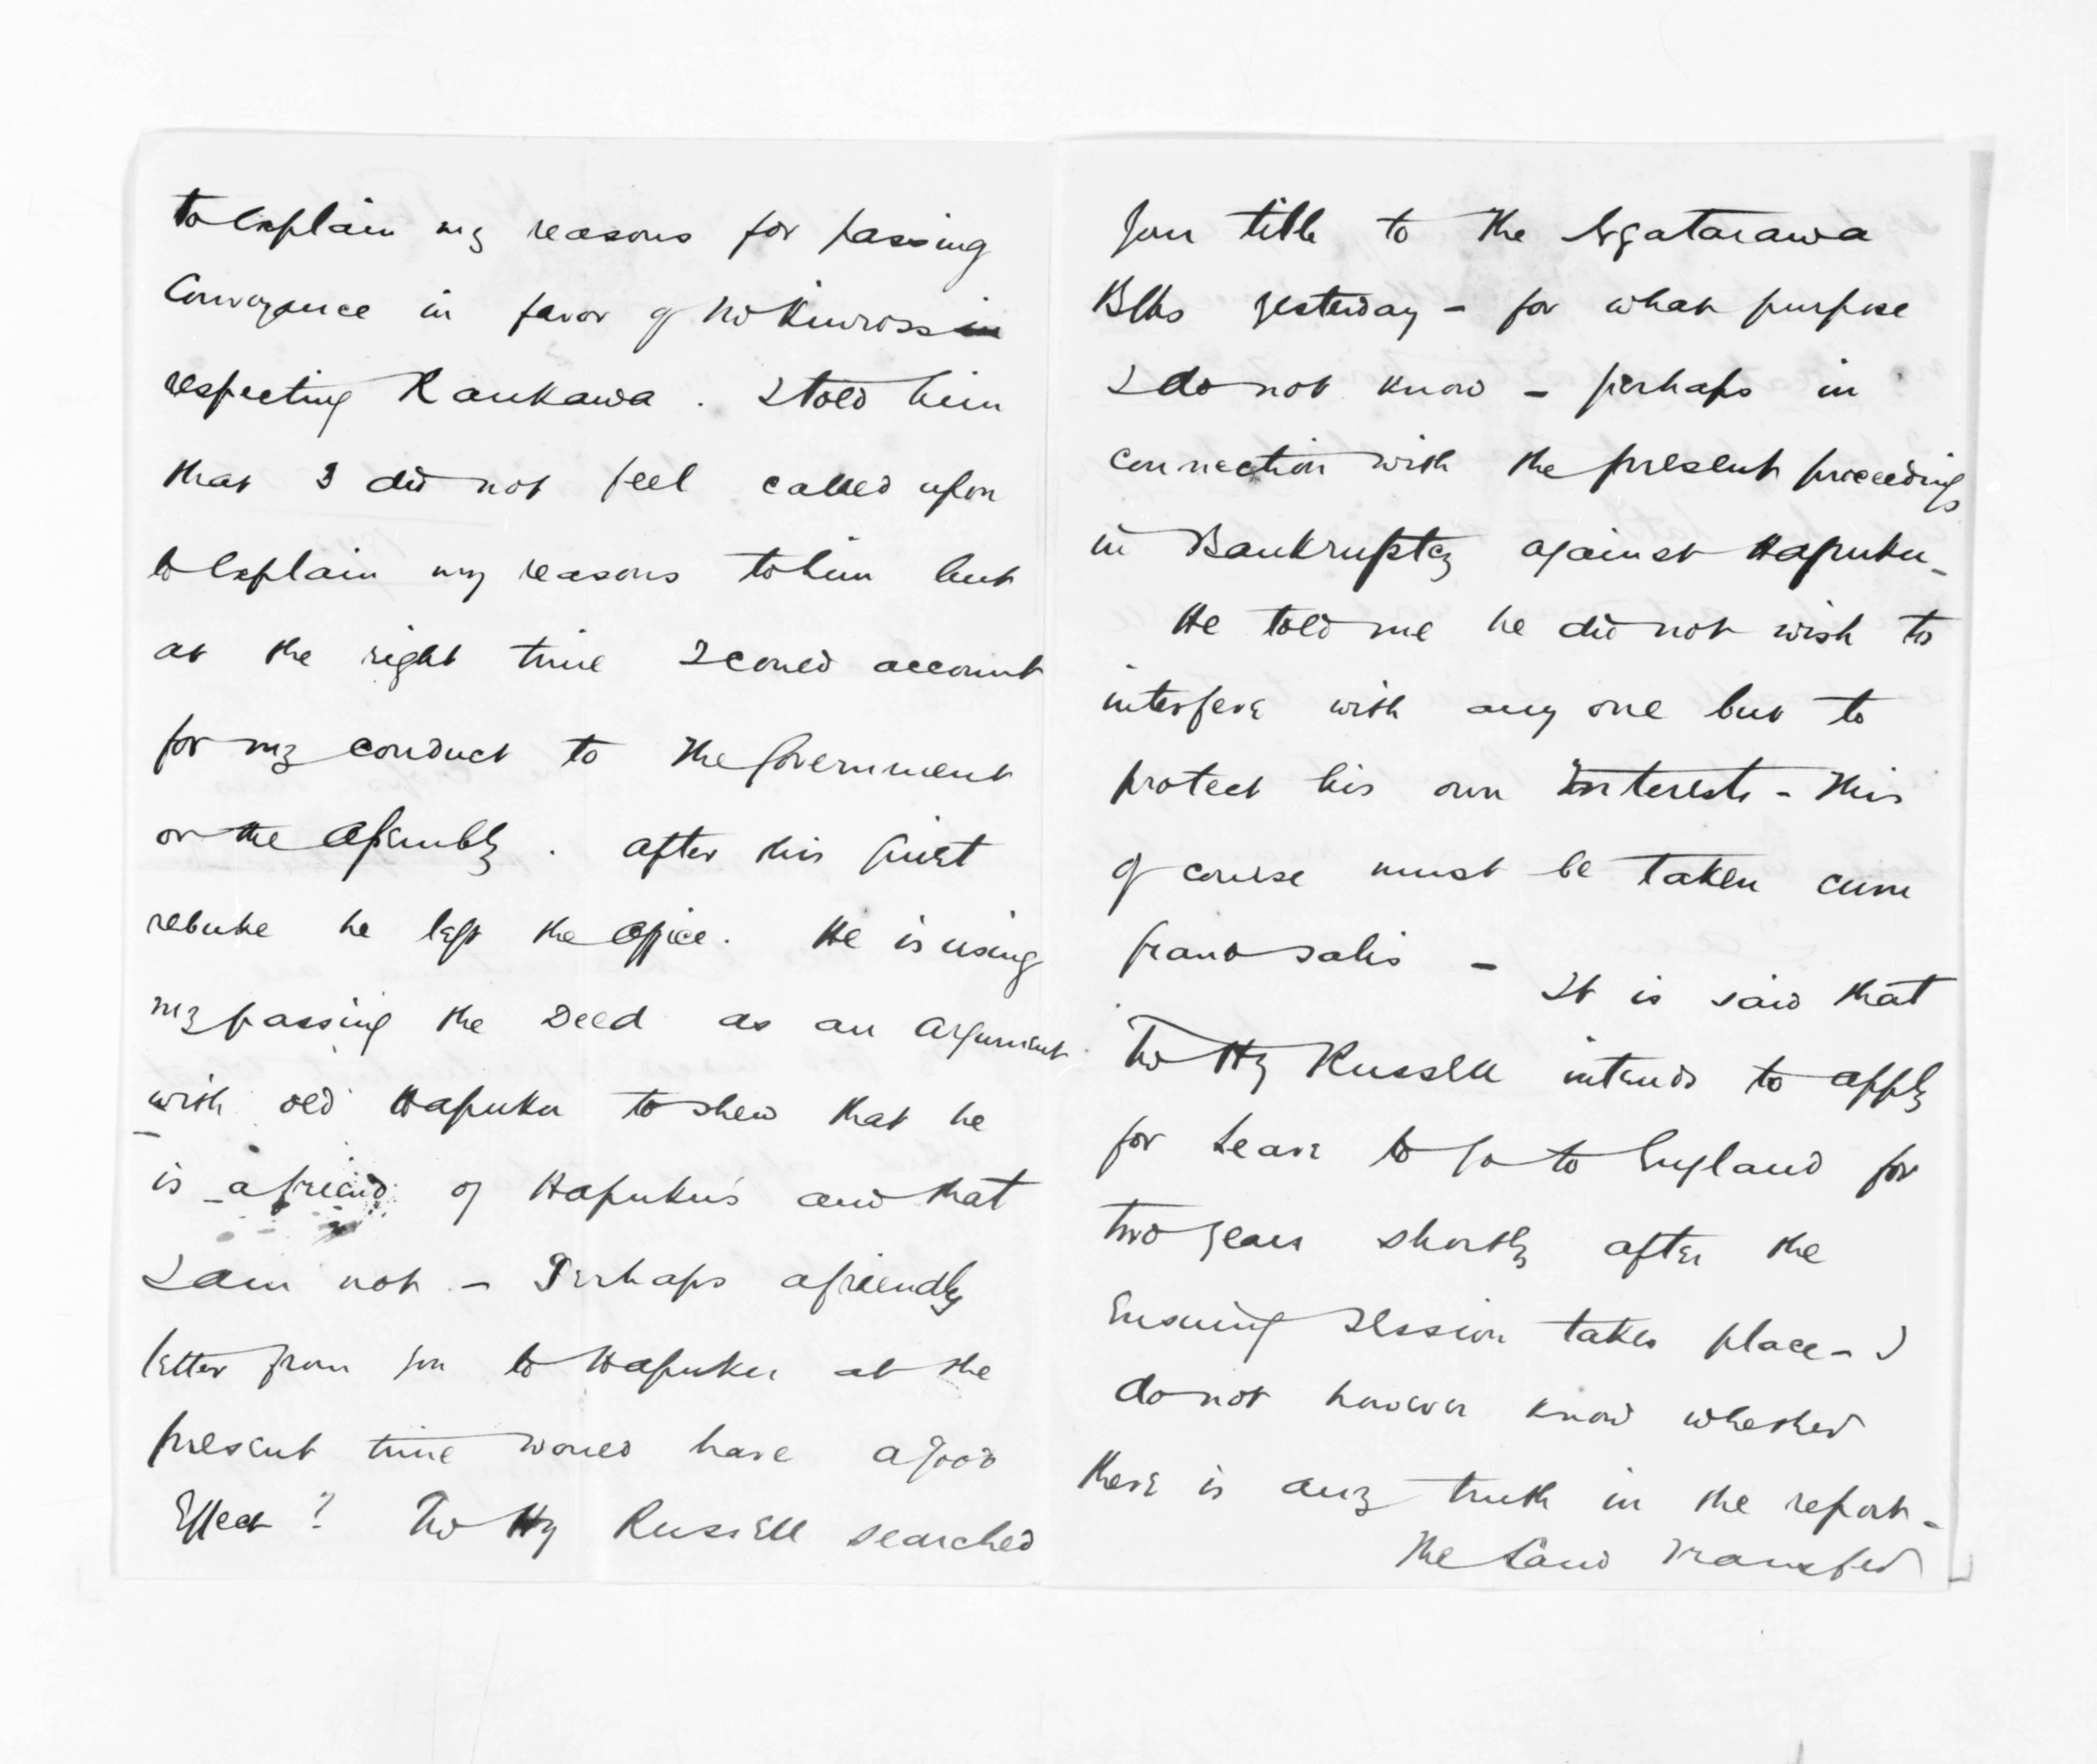 to explain my reasons for passing
Conveyance in favor of Mr Kinross in
respecting Raukawa. I told him
that I did not feel called upon
to explain my reasons to him but
at the right time I could account
for my conduct to the Government
or the Assembly. After this quiet
rebuke he left the Office. He is using
my passing the Deed as an argument
with old Hapuku to shew that he
is a friend of Hapuku's and that
I am not - Perhaps a friendly
letter from you to Hapuku at the
present time would have a good
Effect? Russell searched
your title to the Ngatarawa
Blks yesterday - for what purpose
I do not know - perhaps in
connection with the present proceedings
in Bankruptcy against Hapuku -
He told me he did not wish to
interfere with any one but to
protect his own Interests - This
of course must be taken cum
grano salis - It is said that
Russell intends to apply
for Leave to go to England for
two years shortly after the
Ensuing Session takes place - I
do not however know whether
there is any truth in the report -
The Land Transfer